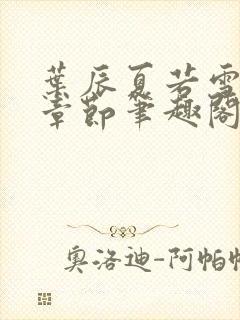 葉辰夏若雪
章節筆趣閣
奧洛迪-阿帕帕